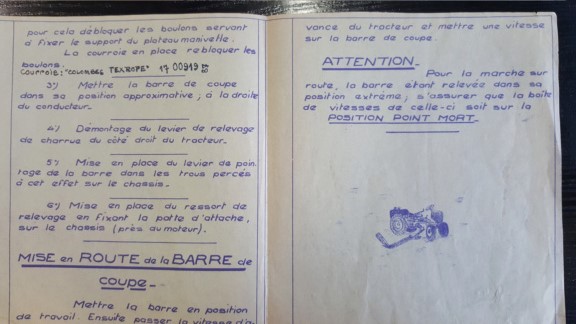 pour cela débloquer les boulons servant
à fixer le support du plateau manivelle.
La courroie en place rebloquer les
boulons.
Courroie: "COLOMBES TEXROPE" 17 00919
3°/ Mettre la barre de coupe
dans sa position approximative; à la droite
du conducteur.
4°/ Démontage du levier de relevage
de charrue du côté droit du tractteur.
5°/ Mise en place du levier de poin
tage de la barre dans les trous percés
à cet effet sur le chassis.
6°/ Mise en place du ressort de
relevage en fixant la patte d'attache,
sur le chassis (près au moteur).
MISE en ROUTE de la BARRE de
coupe_
Mettre la barre en position
de travail. Ensuite passer la vitesse d'a-
vance du tracteur et mettre une vitesse
sur la barre de coupe.
ATTENTION_
Pour la marche sur
route, la barre étant relevée dans sa
position extrême; s'assurer que la boîte
de vitesses de celle-ci soit sur la
POSITION POINT MORT_